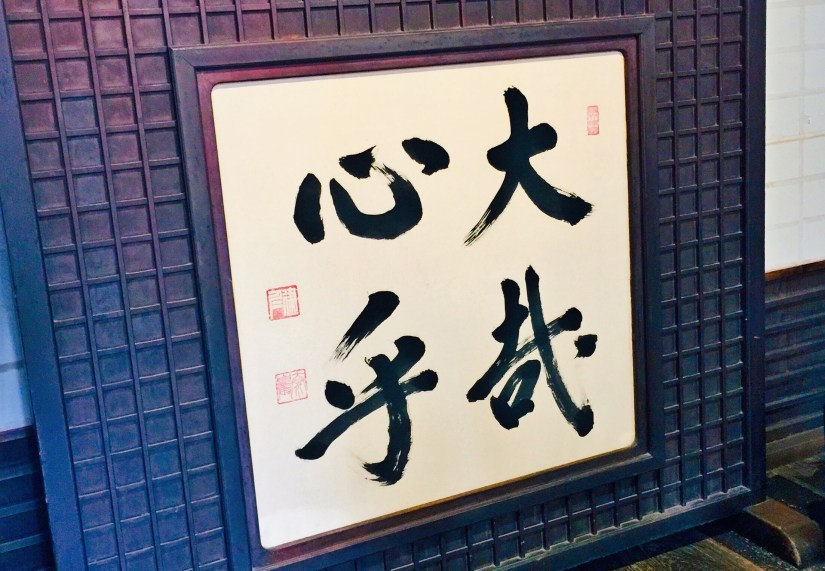 大哉
心乎